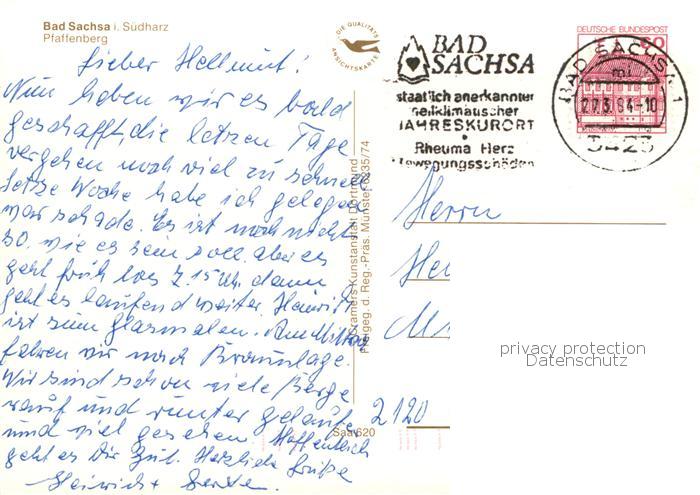 Bad Sachsa i. Südharz
Pfaffenberg
Lieber Hellmut!
Nun haben wir es bald
geschafft, die letzen Tage
vergehen noch viel zu schnell
Letze Woche habe ich gelegen
war schade. Es ist noch nicht
so, wie es sein soll. aber es
geht früh los 7.15 Uhr dann
geht es laufend weiter. Heinrich
ist zum Glasmalen. Am Mittwo
fahren wir nach Braunlage.
Wir sind schon viele Berge
rauf und runter gelaufe
und viel gesehen. Hoffentlich
geht es Dir gut. Herzliche Grüße
Heinrich +
DIE QUALITÄTS
ANSICHTSKARTE
Cramers Kunstanstalt Dortmund
Freigeg. d. Reg.-Präs. Münster 6235/74
Saa 620
BAD
SACHSA
staatlich anerkannter
heilklimatischer
JAHRESKURORT
Rheuma Herz
Bewegungsschäden
DEUTSCHE BUNDESPOST
60
BAD SACHSA 1
mi
27.3.84-10
3423
Herrn
2120
privacy protection
Datenschutz